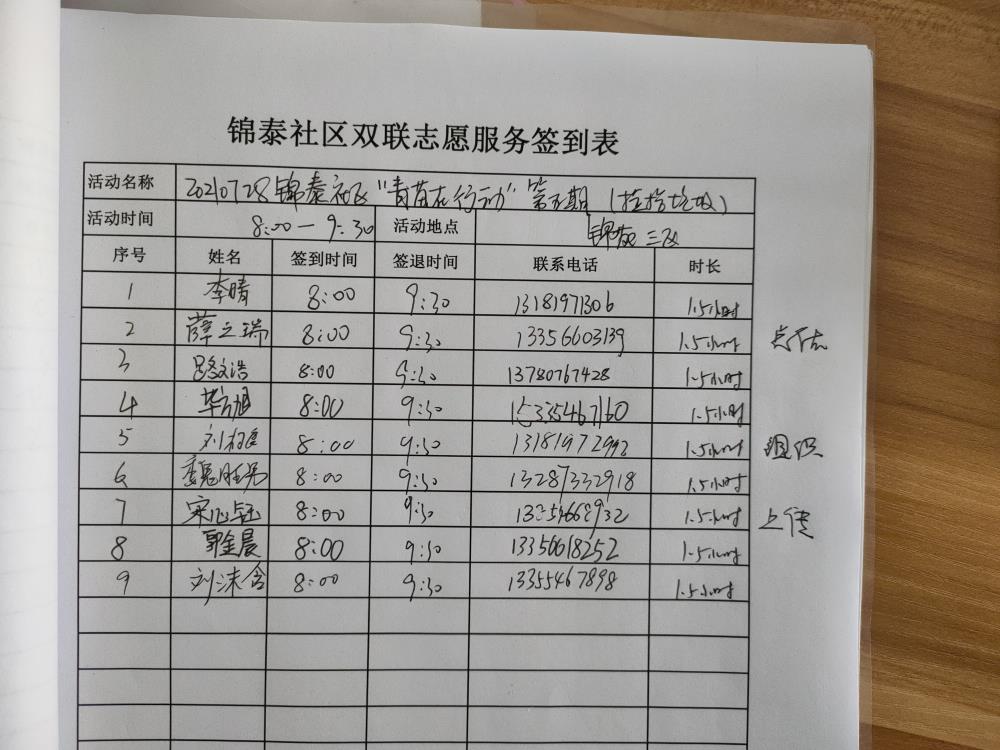 锦泰社区双联志愿服务签到表
活动名称 20210728锦泰社区"青苗在行动"第五期(捡拾垃圾)
活动时间 8:00-9:30 活动地点 锦泰三区
序号 姓名 签到时间 签退时间 联系电话 时长
1 李晴 8:00 9:30 13181971306 1.5小时
2 薛之瑞 8:00 9:30 13356603139 1.5小时
3 路文浩 8:00 9:30 13780767428 1.5小时
4 8:00 9:30 15335467160 1.5小时
5 刘 8:00 9:30 13181972992 1.5小时 组织
6 8:00 9:30 13287332918 1.5小时
7 宋 8:00 9:30 1.5小时 上传
8 郭金晨 8:00 9:30 13356618252 1.5小时
9 刘沫含 8:00 9:30 13355467898 1.5小时